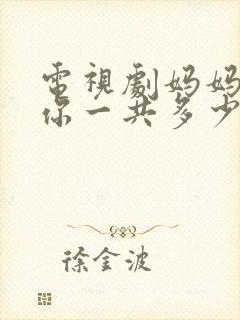 電視劇妈妈
你一共多少
徐金波